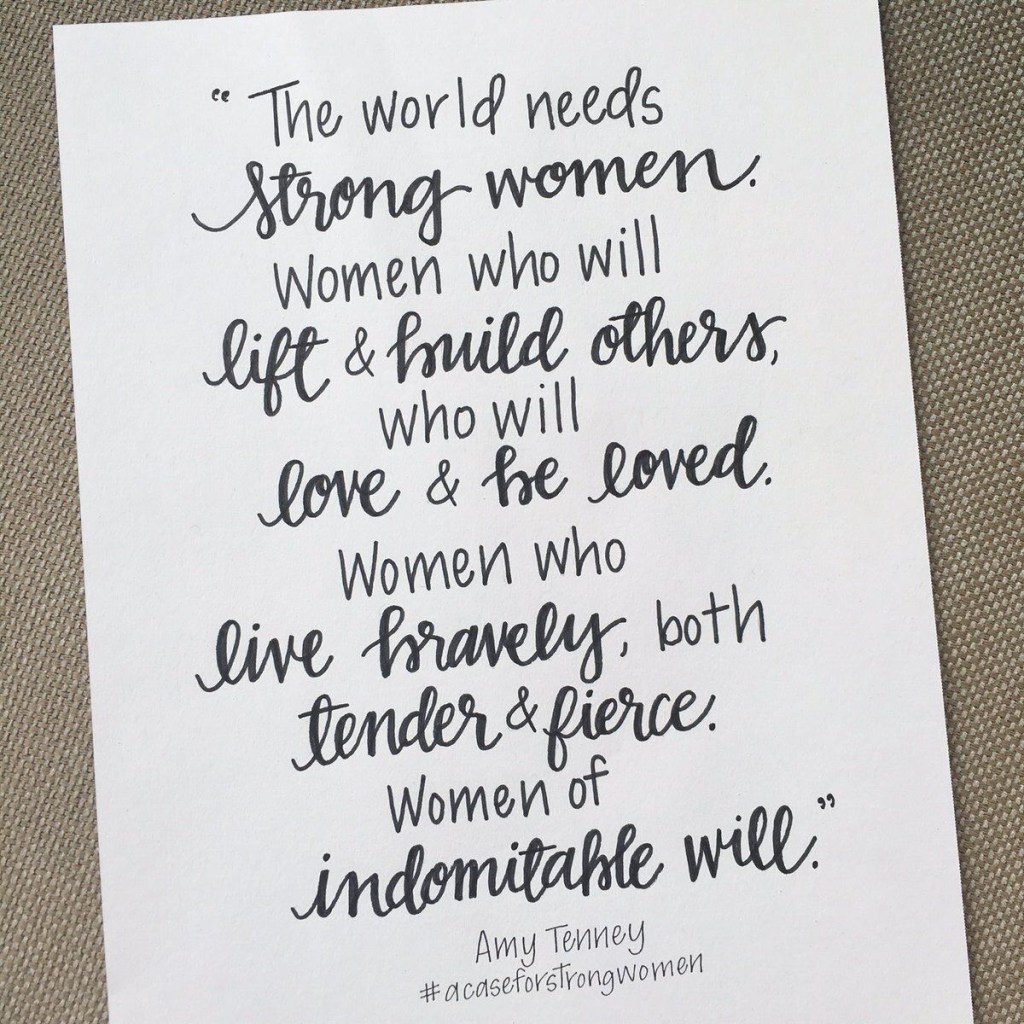 “The world needs
strong women.
Women who will
lift & build others,
who will
love & be loved.
Women who
live bravely, both
tender & fierce.
Women of
indomitable will.”
Amy Tenney
#acaseforstrongwomen